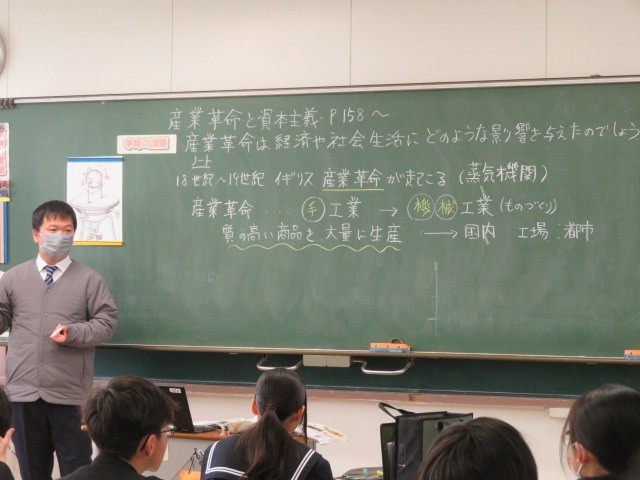 産業革命と資本主義・P158〜
本時の課題
産業革命は経済や社会生活にどのような影響を与えたのでしょう
18世紀〜19世紀 イギリス 産業革命が起こる (蒸気機関)
産業革命 ‥‥ 手工業 → 機械工業 (ものづくり)
質の高い商品を大量に生産 → 国内 工場:都市